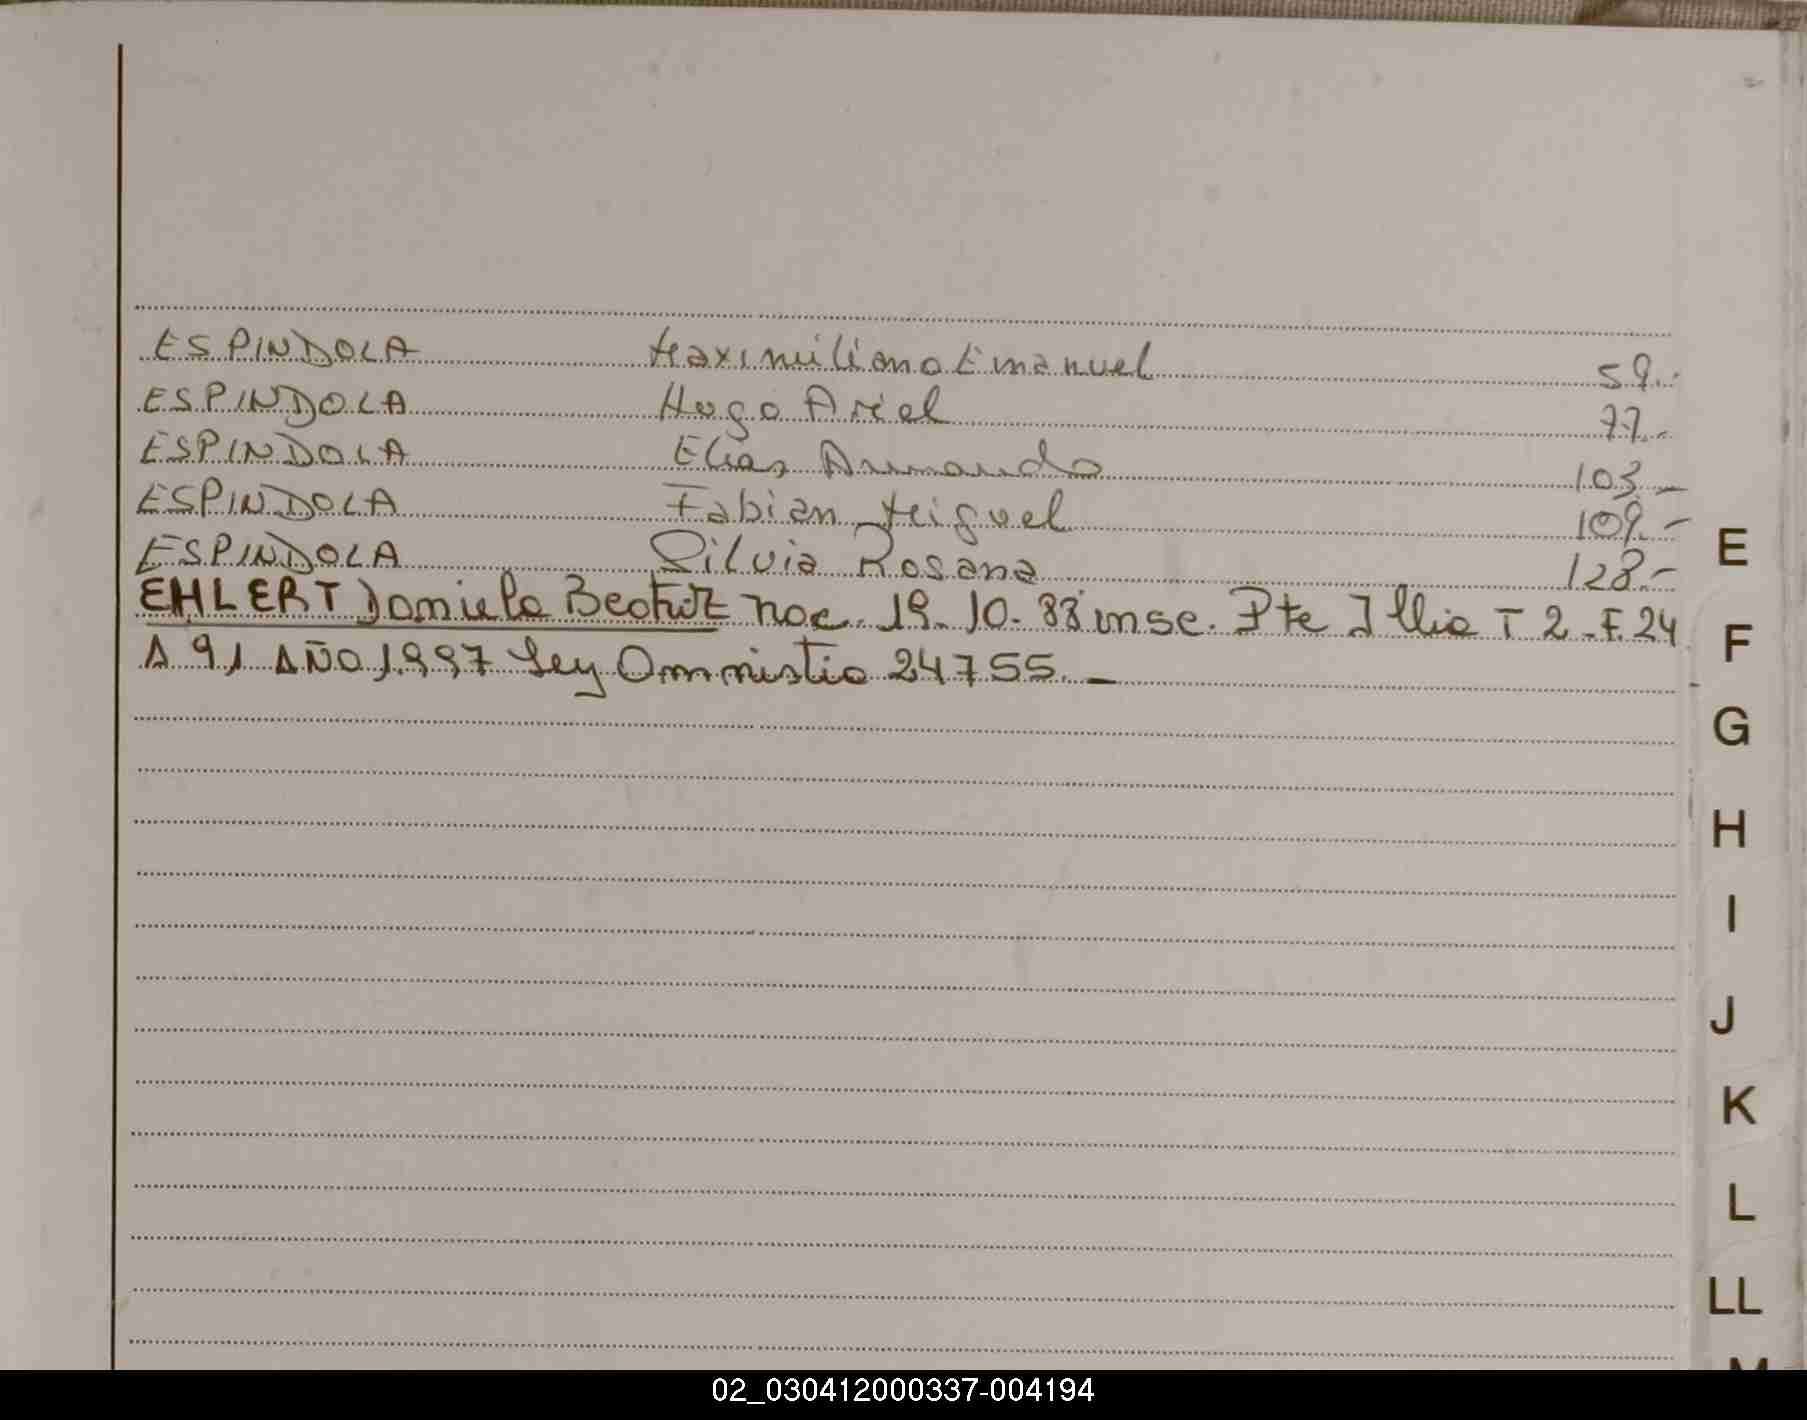 ESPINDOLA Maximiliano Emanuel 59.-
ESPINDOLA Hugo Ariel 77.-
ESPINDOLA Elias Armando 103.-
ESPINDOLA Fabian Miguel 109.-
ESPINDOLA Silvia Rosana 128.-
EHLERT Daniela Beatriz nac. 19-10-88 insc. Pte Illia T 2-F.24
A 91 AÑO 1997 Ley Amnistia 24755.-
E
F
G
H
I
J
K
L
LL
M
02_030412000337-004194